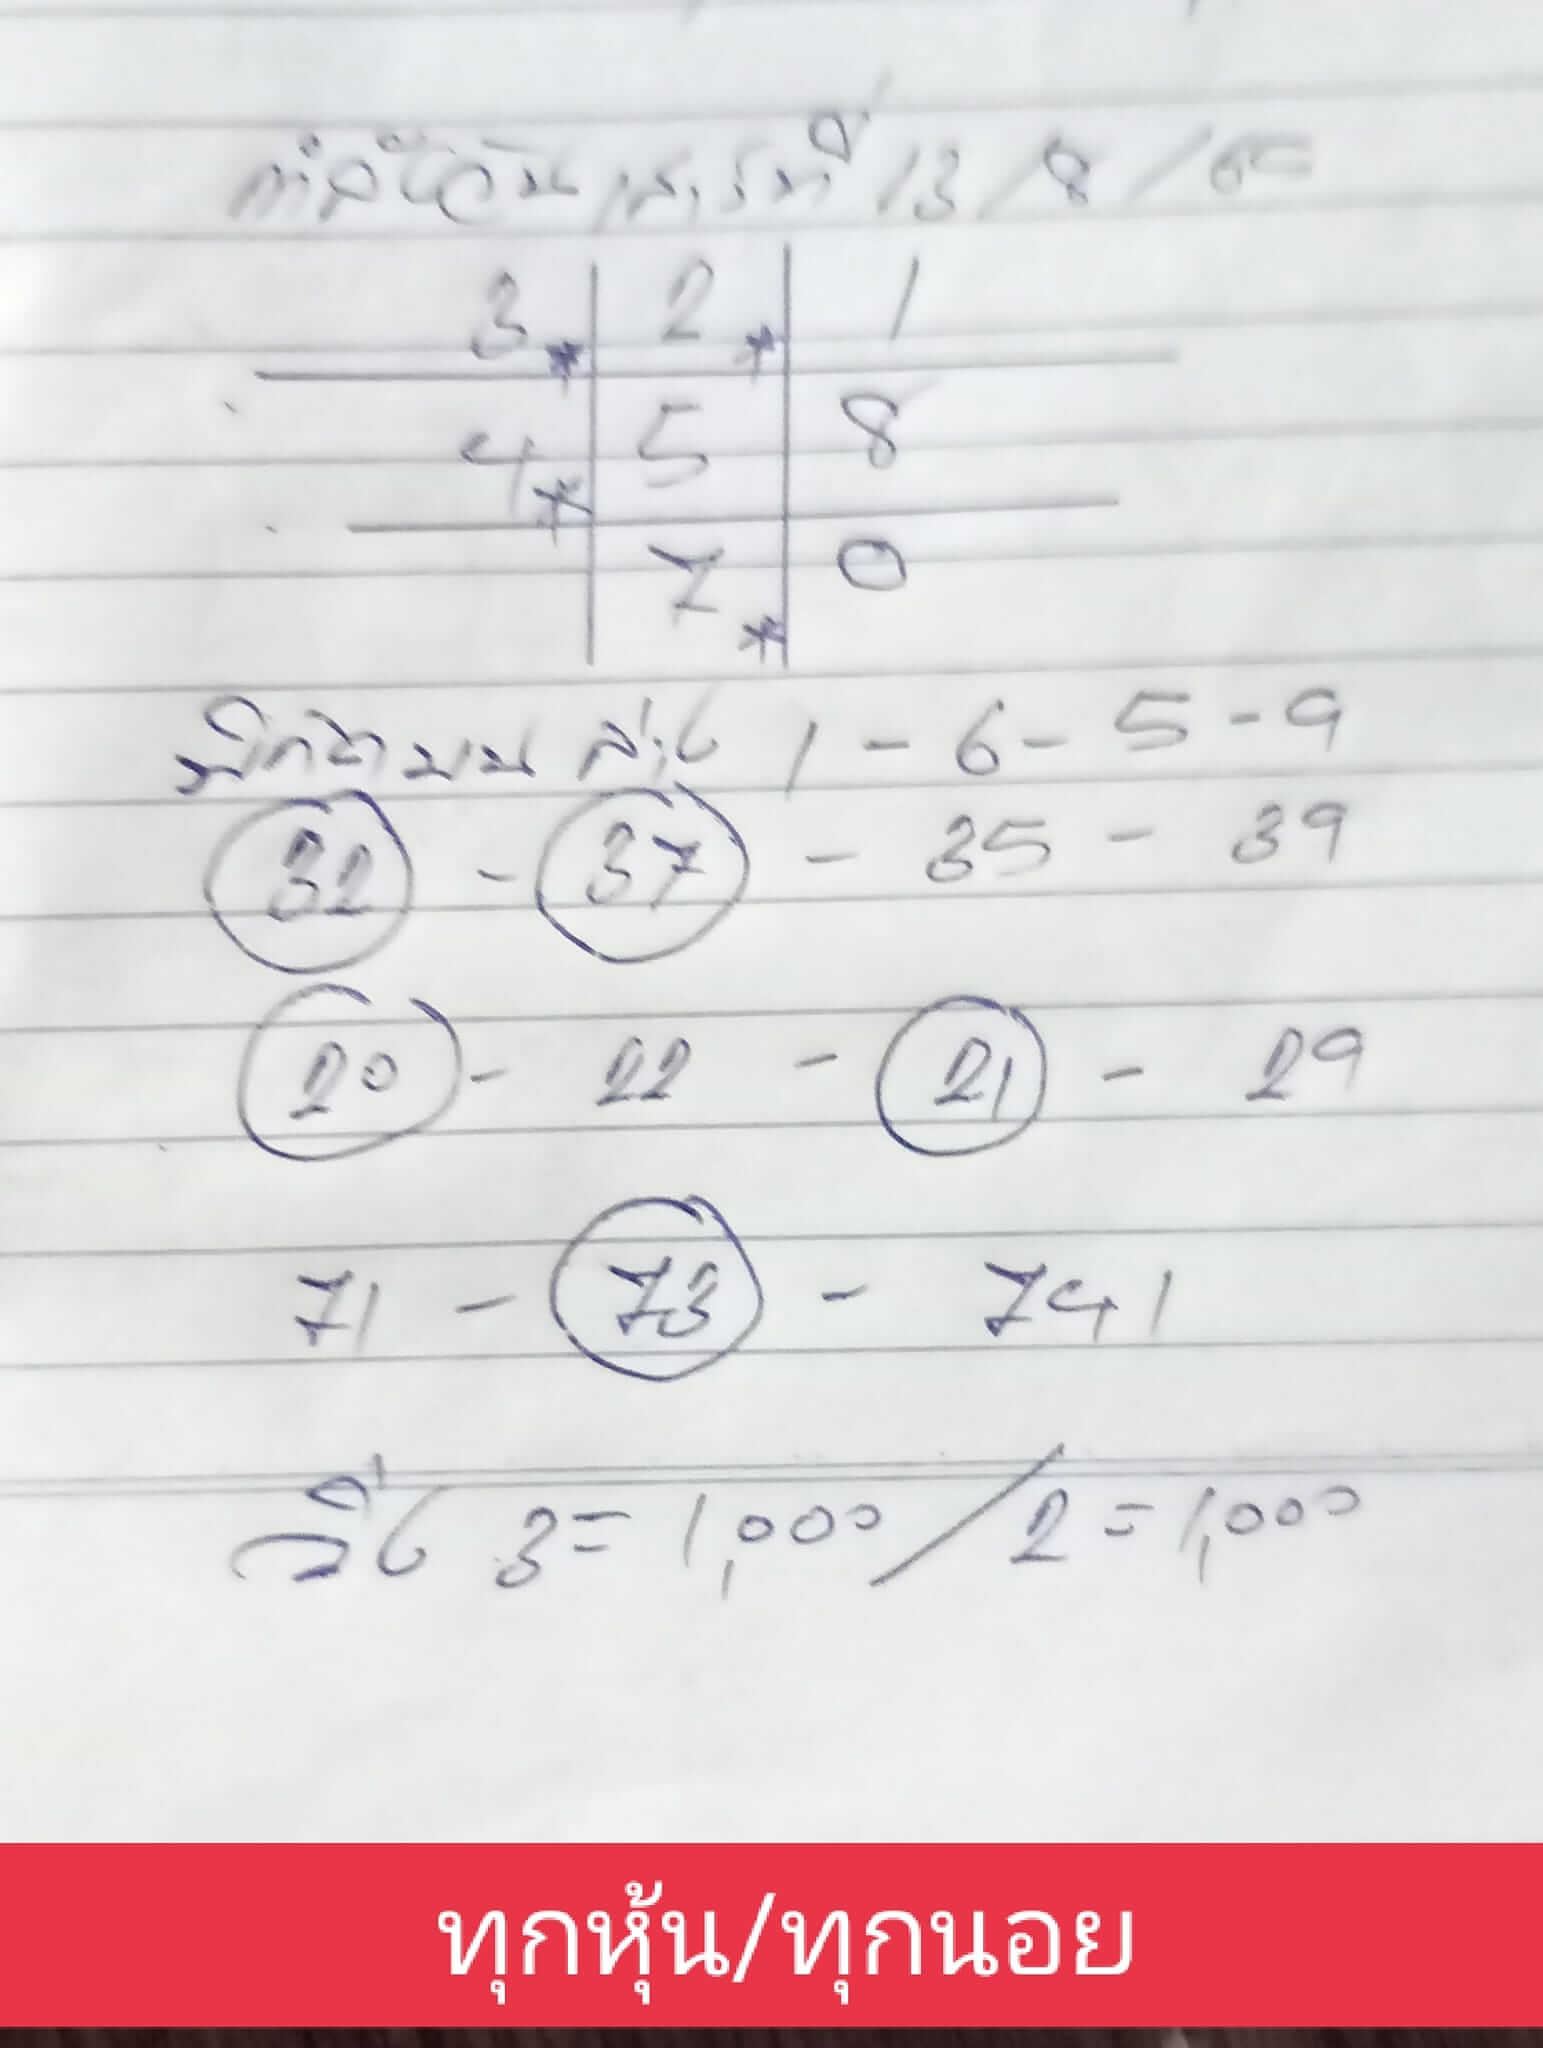 กำลังวัน เสาร์ที่ 13/8/65
3* 2* 1
4* 5 8
7* 0
ปักติบน ล่าง 1 - 6 - 5 - 9
32 - 37 - 35 - 39
20 - 22 - 21 - 29
71 - 73 - 741
วิ่ง 3 = 1,000 / 2 = 1,000
ทุกหุ้น/ทุกนอย